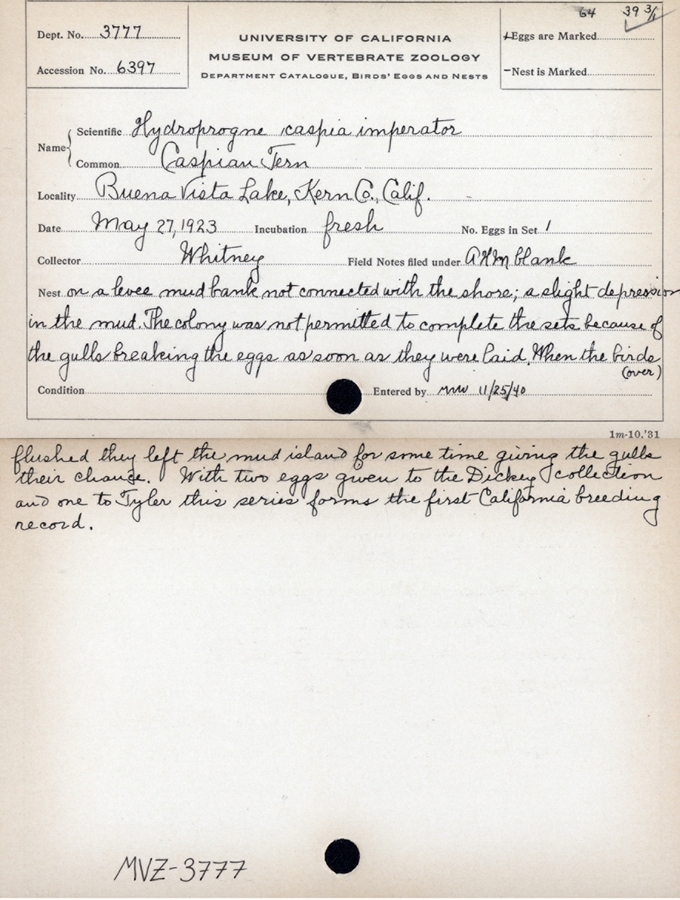 64 39 3/1
Dept. No. 3777
Accession No. 6397
UNIVERSITY OF CALIFORNIA
MUSEUM OF VERTEBRATE ZOOLOGY
DEPARTMENT CATALOGUE, BIRDS' EGGS AND NESTS
+Eggs are Marked
-Nest is Marked
Name
Scientific Hydroprogne caspia imperator
Common Caspian Tern
Locality Buena Vista Lake, Kern Co., Calif.
Date May 27, 1923 Incubation fresh No. Eggs in Set 1
Collector Whitney Field Notes filed under AHM blank
Nest on a levee mud bank not connected with the shore; a slight depression
in the mud. The colony was not permitted to complete the sets because of
the gulls breaking the eggs as soon as they were laid. When the birds
(over)
Condition Entered by MW 11/25/40
1m-10.'31
flushed they left the mud island for some time giving the gulls
their chance. With two eggs given to the Dickey collection
and one to Tyler this series forms the first California breeding
record.
MVZ-3777